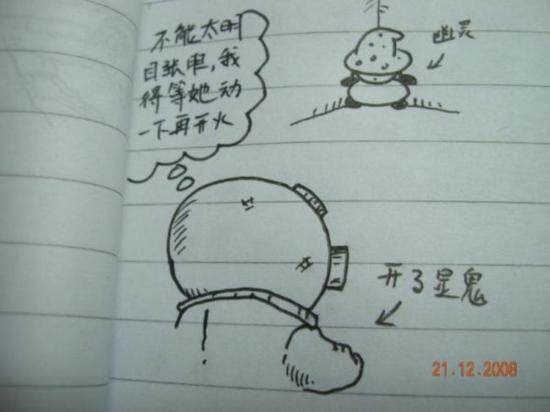 不能太明
目张胆,我
得等她动
一下再开火
幽灵
开了显鬼
21.12.2008